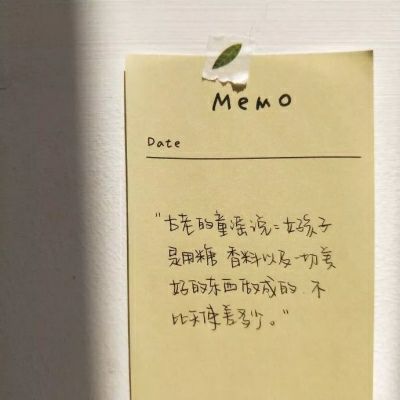 Memo
Date
“古老的童谣说:好孩子
是用糖 香料以及一切美
好的东西做成的.不
比天使差多少。”